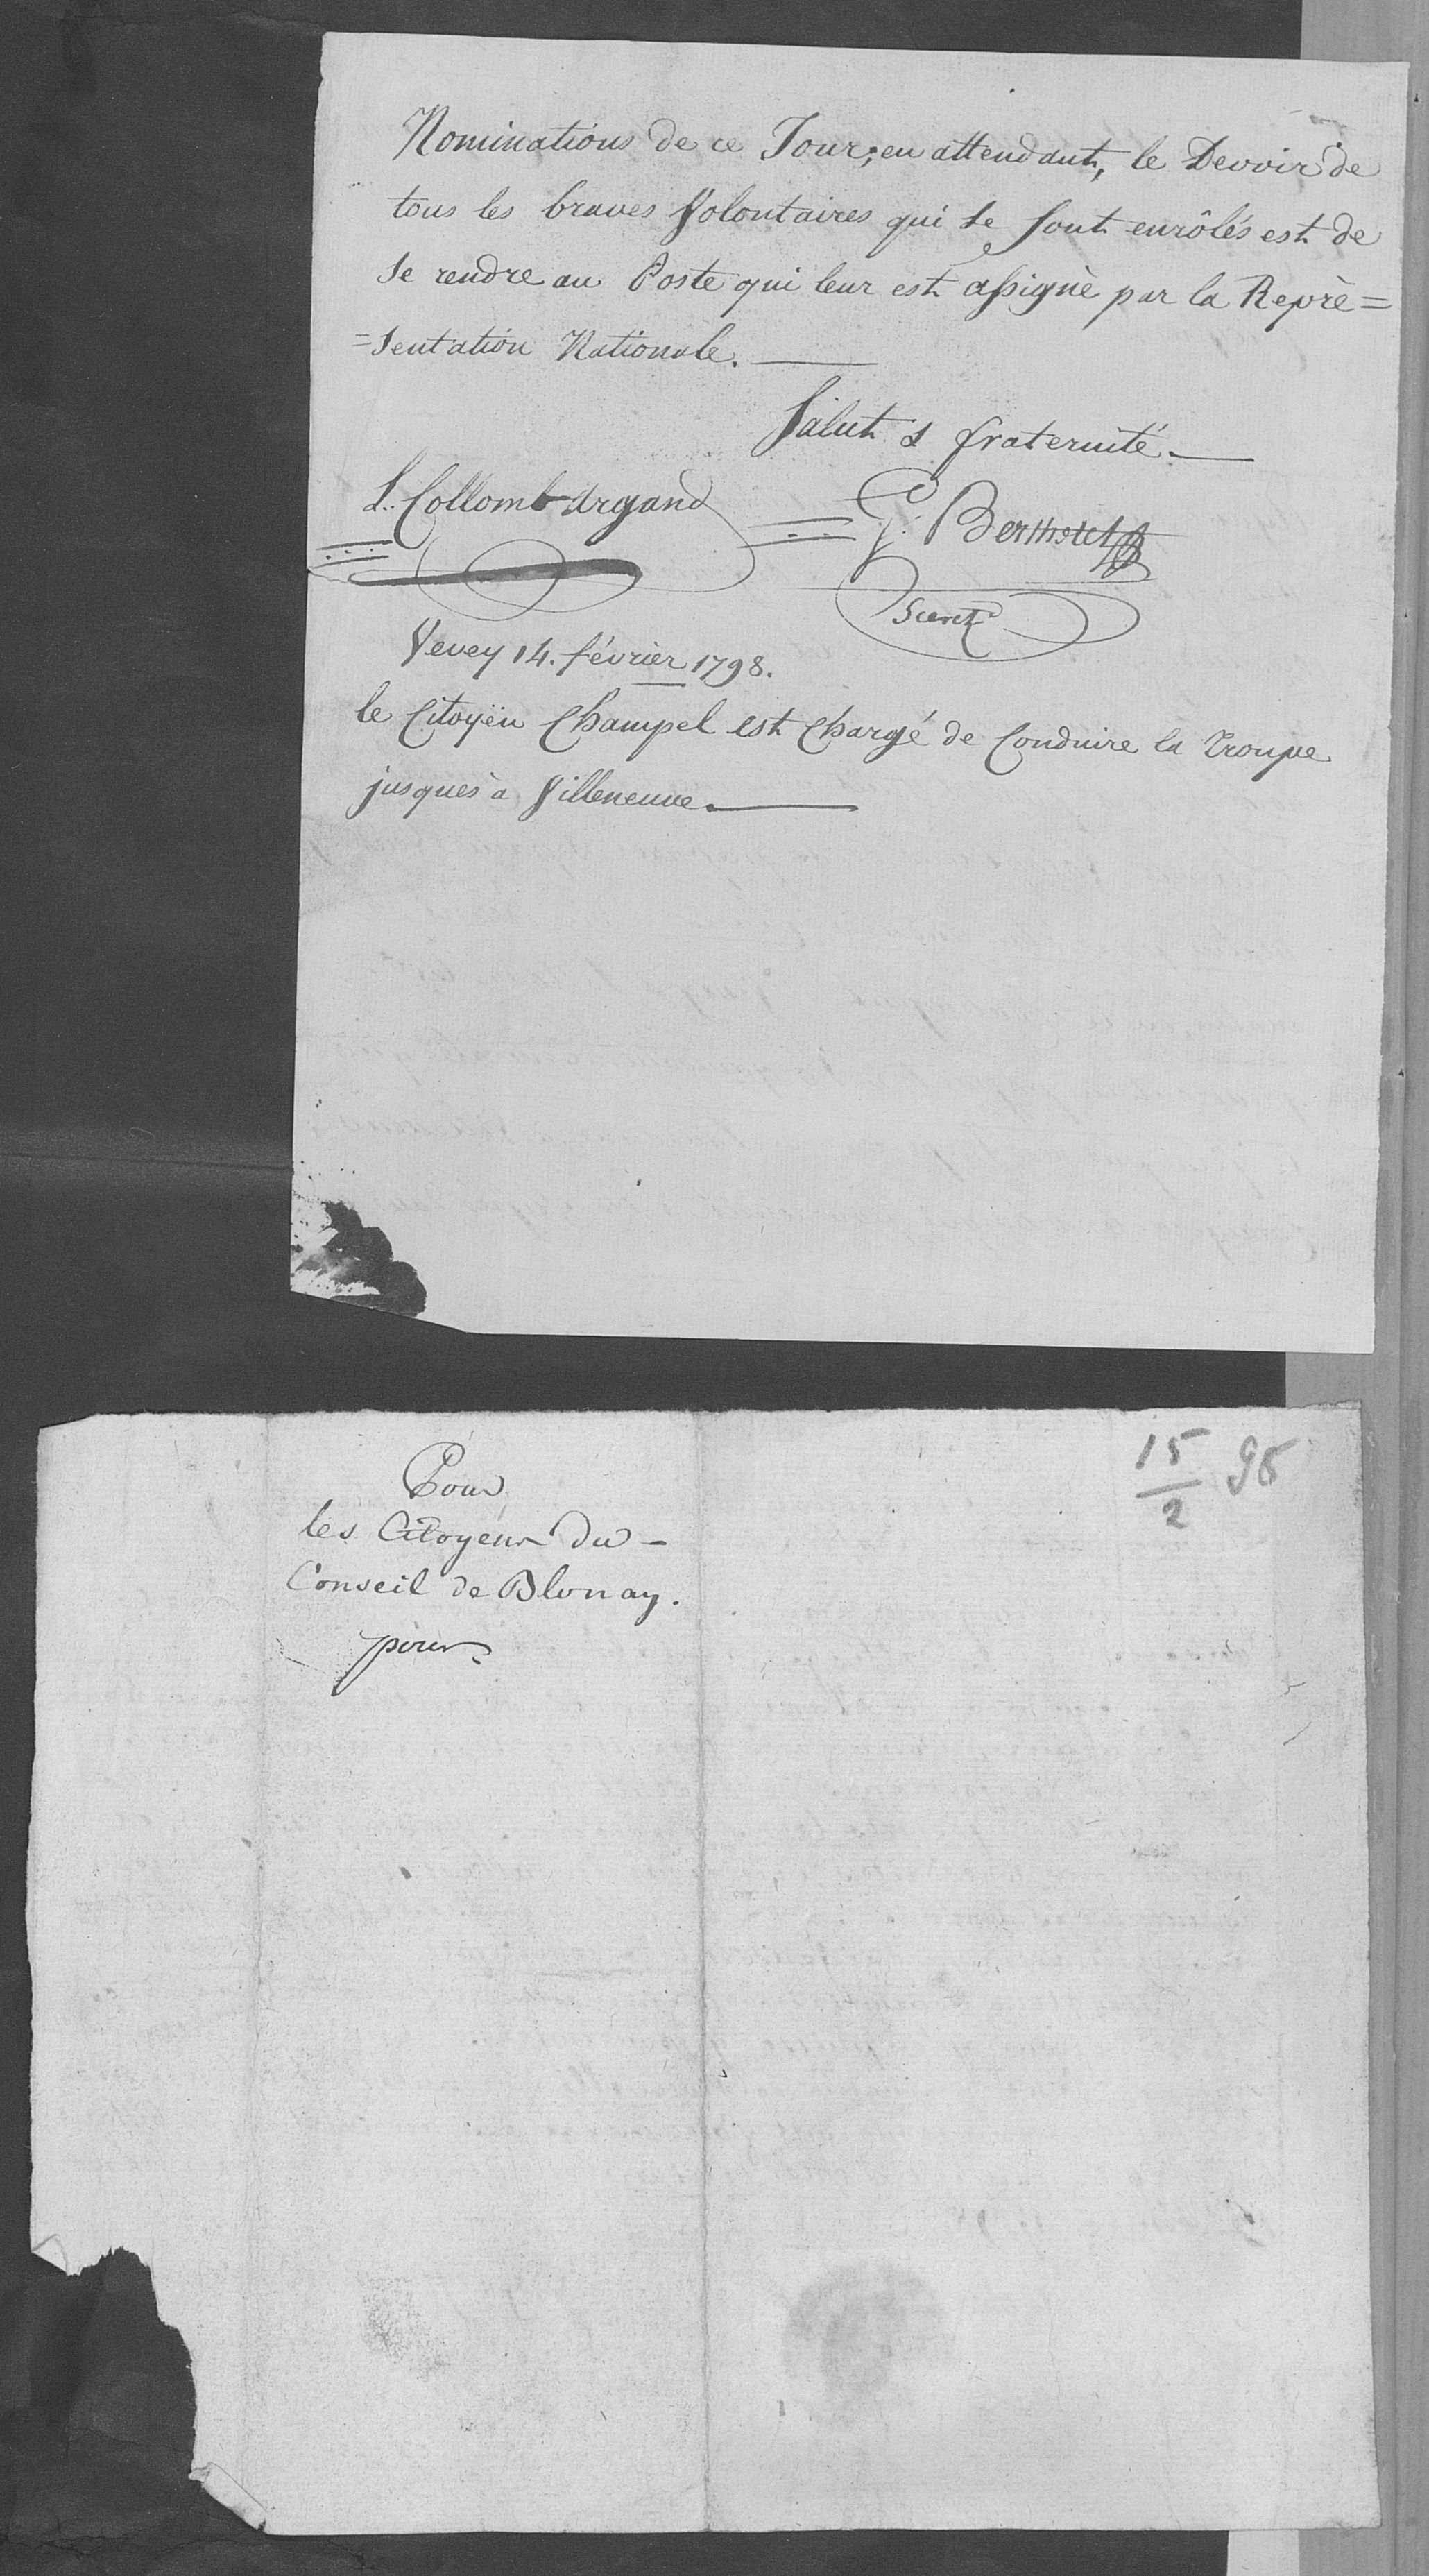 Nominations de ce Jour; en attendant, le Devoir de
tous les braves Volontaires qui se sont enrôlés est de
se rendre au Poste qui leur est assigné par la Repré=
=sentation Nationale.
Salut & fraternité.
L. Collomb Argand
G. Bertholet
Secret.
Vevey 14. février 1798.
le Citoyën Champel est Chargé de Conduire la Troupe
jusques à Villeneuve.
15/2 98
Pour
les Citoyens du -
Conseil de Blonay.
pour